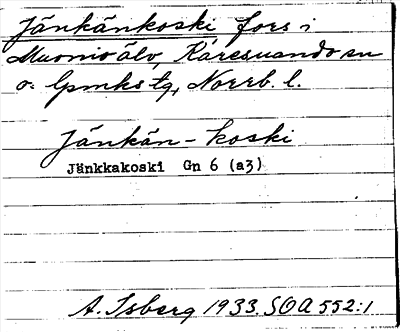 Jänkänkoski fors i
Muonio älv, Karesuando sn
o. lpmks tg, Norrb. l.
Jänkän-koski
Jänkkakoski Gn 6 (a3)
A. Isberg 1933. SOA 552:1